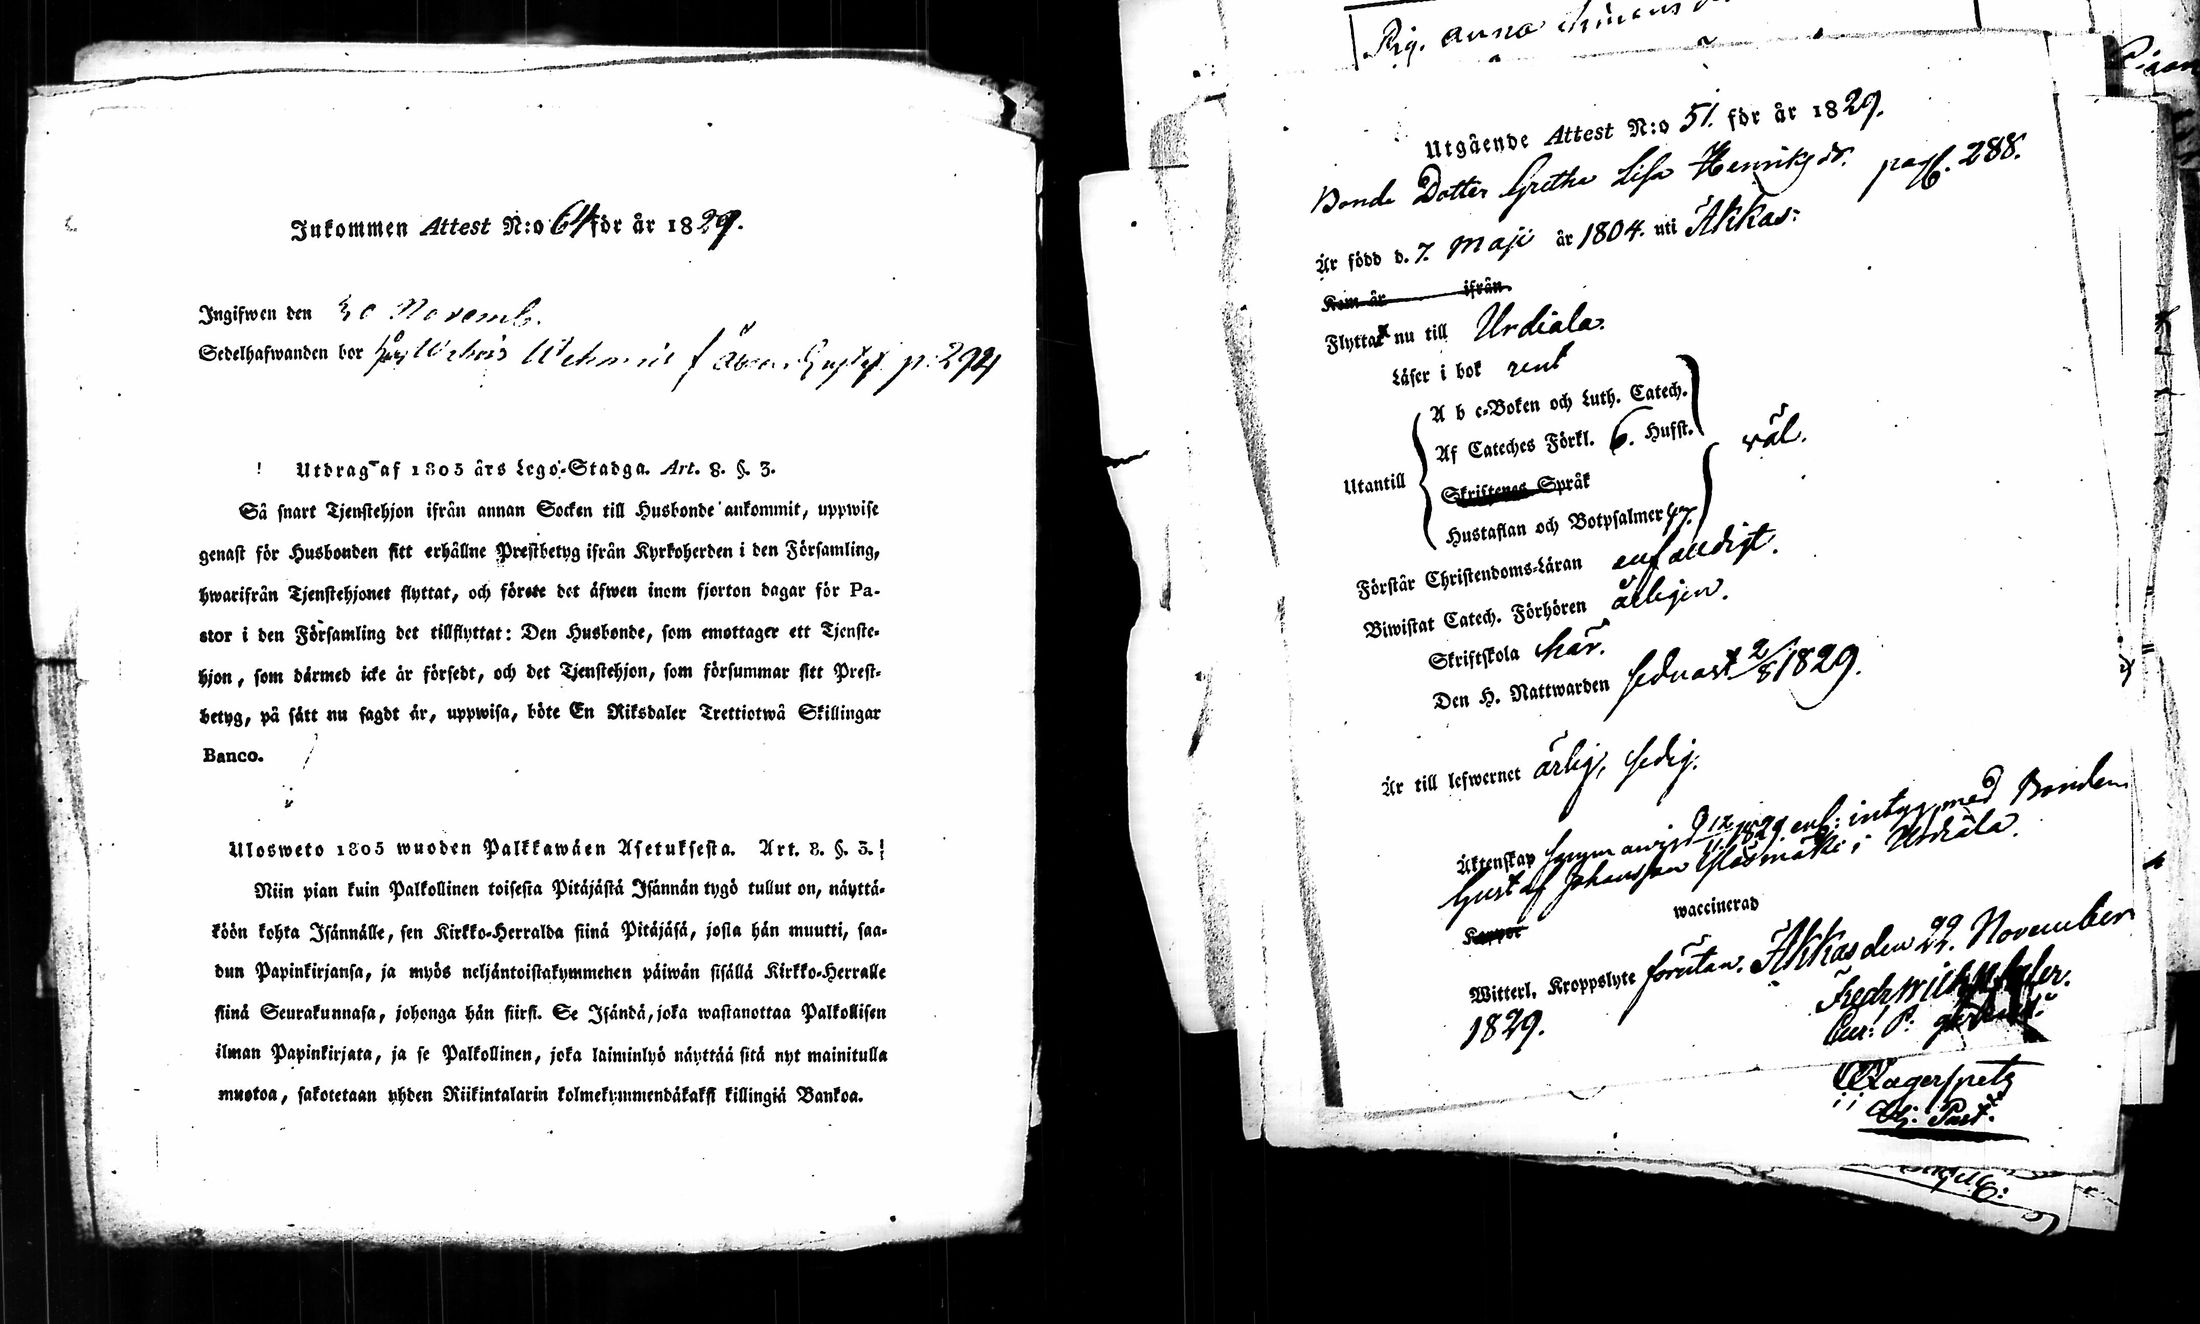 Inkommen Attest N:o 64 för år 1829.
Ingifwen den 30 Novemb.
Sedelhafwanden bor p. 294
Utdrag af 1805 års Lego-Stadga. Art. 8. §. 3.
Så snart Tjenstehjon ifrån annan Socken till Husbonde ankommit, uppwise
genast för Husbonden sitt erhållne Prestbetyg ifrån Kyrkoherden i den Församling,
hwarifrån Tjenstehjonet flyttat, och förete det äfwen inom fjorton dagar för Pa-
stor i den Församling det tillflyttat: Den Husbonde, som emottager ett Tjenste-
hjon, som därmed icke är försedt, och det Tjenstehjon, som försummar sitt Prest-
betyg, på sätt nu sagdt är, uppwisa, böte En Riksdaler Trettiotwå Skillingar
Banco.
Ulosweto 1805 wuoden Palkkawäen Asetuksesta. Art. 8. §. 3.
Niin pian kuin Palkollinen toisesta Pitäjästä Isännän tygö tullut on, näyttä-
köön kohta Isännälle, sen Kirkko-Herralda siinä Pitäjäsä, josta hän muutti, saa-
dun Papinkirjansa, ja myös neljäntoistakymmenen päiwän sisällä Kirkko-Herralle
siinä Seurakunnasa, johonga hän siirst. Se Isändä, joka wastanottaa Palkollisen
ilman Papinkirjata, ja se Palkollinen, joka laiminlyö näyttää sitä nyt mainitulla
muotoa, sakotetaan yhden Riikintalarin kolmekymmendäkaksi killingiä Bankoa.
Pig. Anna
Utgående Attest N:o 51. för år 1829.
Bonde Dotter Gretha Lisa Henriksdr. pag. 288.
Är född d. 7. Maji år 1804. uti Akkas:
Kom år ifrån
Flyttar nu till Urdiala.
Läser i bok rent
A b c-Boken och Luth. Catech.
Af Cateches Förkl. 6. Hufst.
Utantill
wäl.
Skriftenes Språk
Hustaflan och Botpsalmer
Förstår Christendoms-Läran enfaldigt.
Biwistat Catech. Förhören årligen.
Skriftskola här.
Den H. Nattwarden sednast 2/8 1829.
Är till lefwernet ärlig, sedig.
Äktenskap 1829 enl: intyg, med Bonden
Gustaf Johansson i Urdiala.
Koppor waccinerad
Witterl. Kroppslyte förutan. Akkas den 22. November
1829.